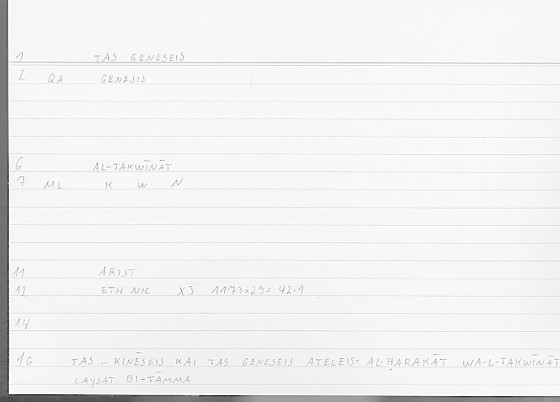 1 TAS GENESEIS
2 QA GENESIS
6 AL-TAKWĪNĀT
7 ML K W N
11 ARIST
12 ETH NIC X3 1173a29= 42.1
14
16 TAS – KINĒSEIS KAI TAS GENESEIS ATELEIS= AL-ḤARAKĀT WA-L-TAKWĪNĀT
LAYSAT BI-TĀMMA